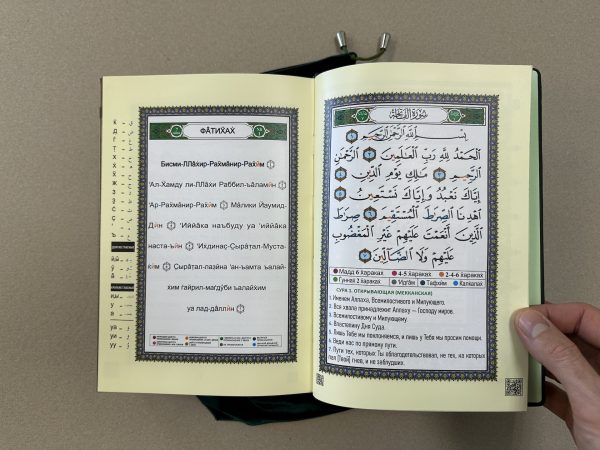 ФА̄ТИХ̣АХ
Бисми-ЛЛа̄хир-Рах̣ма̄нир-Рах̣ӣм
'Ал-Х̣амду ли-ЛЛа̄хи Раббил-ъа̄лямӣн
'Ар-Рах̣ма̄нир-Рах̣ӣм Ма̄лики Йаумид-
Дӣн 'Иййа̄ка наъбуду уа 'иййа̄ка
наста-ъӣн 'Ихдинаc̣-С̣ыра̄т̣ал-Муста-
к̣ӣм С̣ыра̄т̣ал-лаз̱ӣна 'ан-ъамта ъалай-
хим г̣айрил-маг̣д̣ӯби ъалайхим
уа лад̣-д̣а̄ллӣн
سُورَةُ الْفَاتِحَةِ
بِسْمِ اللَّهِ الرَّحْمَٰنِ الرَّحِيمِ ١
الْحَمْدُ لِلَّهِ رَبِّ الْعَالَمِينَ ٢ الرَّحْمَٰنِ
الرَّحِيمِ ٣ مَالِكِ يَوْمِ الدِّينِ ٤
إِيَّاكَ نَعْبُدُ وَإِيَّاكَ نَسْتَعِينُ ٥
اهْدِنَا الصِّرَاطَ الْمُسْتَقِيمَ ٦ صِرَاطَ
الَّذِينَ أَنْعَمْتَ عَلَيْهِمْ غَيْرِ الْمَغْضُوبِ
عَلَيْهِمْ وَلَا الضَّالِّينَ ٧
Мадд 6 х̣араках 4-5 х̣араках 2-4-6 х̣араках
Гунна 2 х̣араках Идг̣а̄м Тафхӣм К̣алк̣алах
СУРА 1. ОТКРЫВАЮЩАЯ (МЕККАНСКАЯ)
1. Именем Аллаха, Всемилостивого и Милующего.
2. Вся хвала принадлежит Аллаху — Господу миров.
3. Всемилостивому и Милующему.
4. Властелину Дня Суда.
5. Лишь Тебе мы поклоняемся, и лишь у Тебя мы просим помощи.
6. Веди нас по прямому пути.
7. Пути тех, которых Ты облагодетельствовал, не тех, на которых
пал [Твой] гнев, и не заблудших.